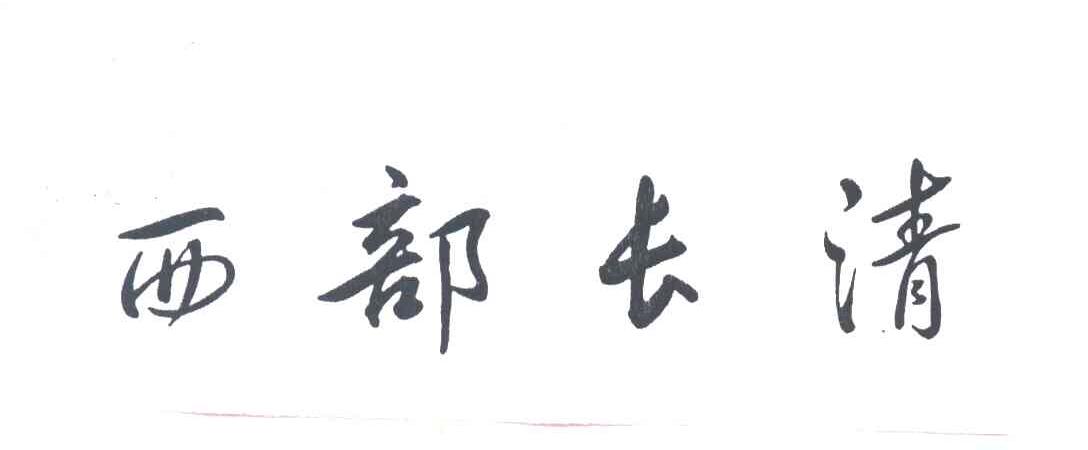 西部长清